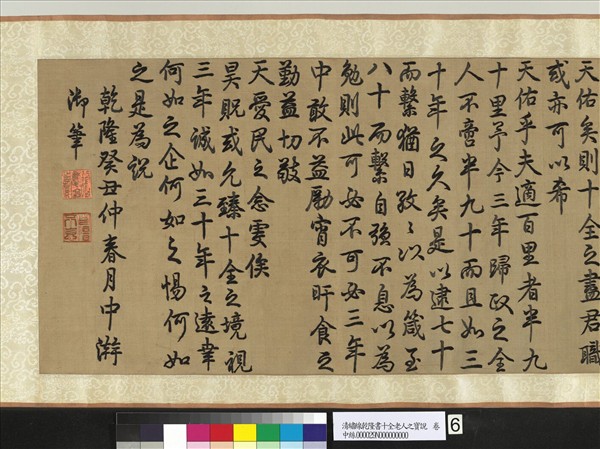 天佑矣則十全之盡君職
或亦可以希
天佑乎夫適百里者半九
十里予今三年歸政之全
人不啻半九十而且如三
十年之久矣是以逮七十
而繫猶日孜〻以為箴至
八十而繫自強不息以為
勉則此可必不可必三年
中敢不益勵宵衣旰食之
勤益切敬
天愛民之念雯俟
昊貺或允臻十全之境視
三年誠如三十年之遠幸
何如之企何如之惕何如
之是為說
乾隆癸丑仲春月中澣
御筆
清緙絲乾隆書十全老人之寶說 卷
中絲000029N000000000
6